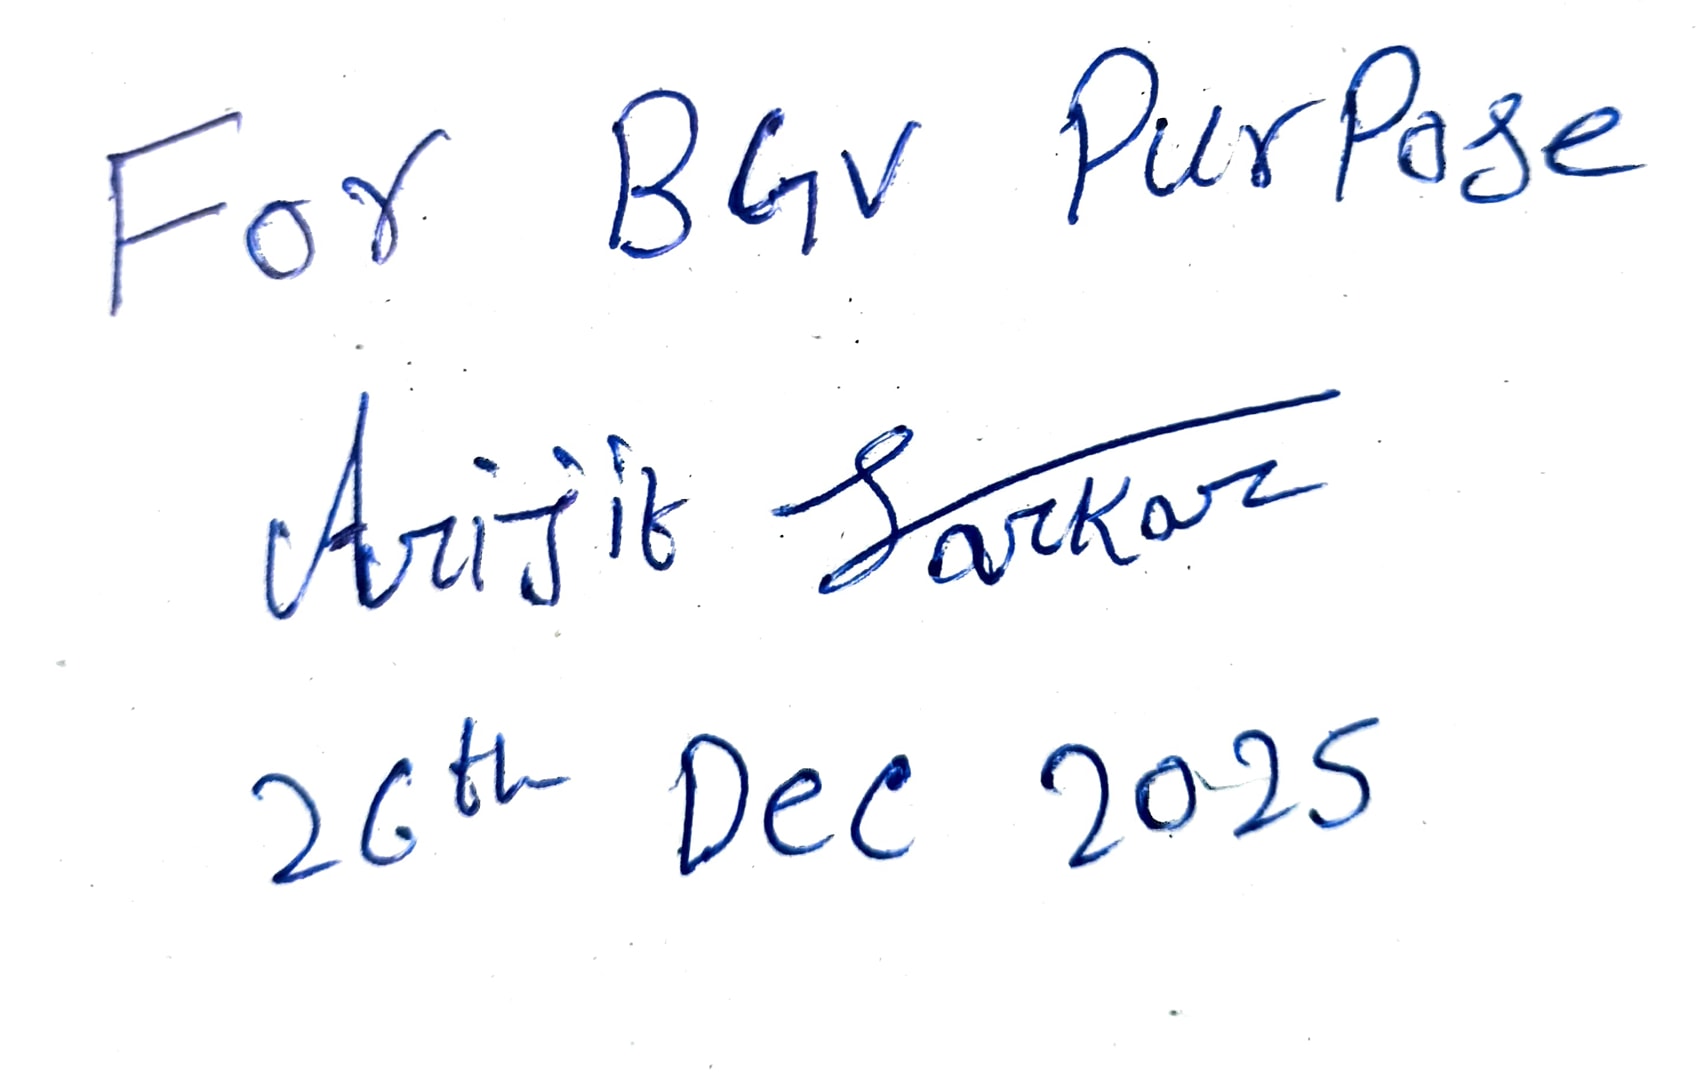 For BGV PurPose
Arijit Sarkar
26th Dec 2025